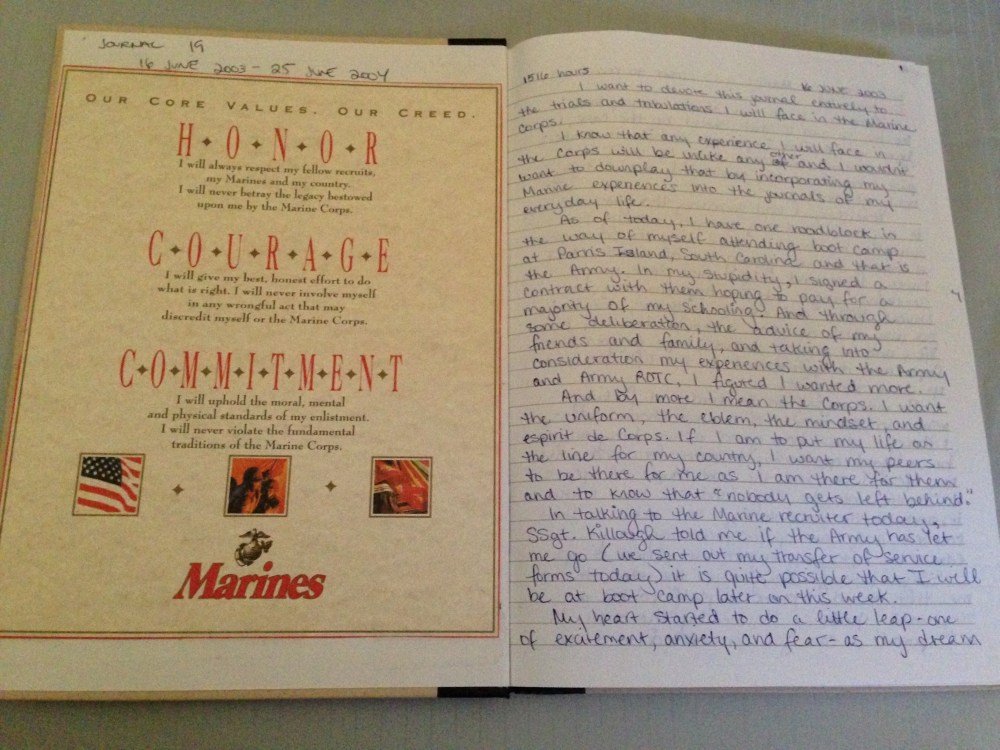 JOURNAL 19
16 JUNE 2003 - 25 JUNE 2004
OUR CORE VALUES. OUR CREED.
H·O·N·O·R
I will always respect my fellow recruits,
my Marines and my country.
I will never betray the legacy bestowed
upon me by the Marine Corps.
C·O·U·R·A·G·E
I will give my best, honest effort to do
what is right. I will never involve myself
in any wrongful act that may
discredit myself or the Marine Corps.
C·O·M·M·I·T·M·E·N·T
I will uphold the moral, mental
and physical standards of my enlistment.
I will never violate the fundamental
traditions of the Marine Corps.
Marines
1516 hours 16 JUNE 2003
I want to devote this journal entirely to
the trials and tribulations I will face in the Marine
Corps.
I know that any experience I will face in
the Corps will be unlike any other and I wouldn't
want to downplay that by incorporating my
Marine experiences into the journals of my
everyday life.
As of today, I have one roadblock in
the way of myself attending boot camp
at Parris Island, South Carolina and that is
the Army. In my stupidity, I signed a
contract with them hoping to pay for a
majority of my schooling. And through
some deliberation, the advice of my
friends and family, and taking into
consideration my experiences with the Army
and Army ROTC, I figured I wanted more.
And by more I mean the Corps. I want
the uniform, the eblem, the mindset, and
espirit de Corps. If I am to put my life on
the line for my country, I want my peers
to be there for me as I am there for them
and to know that "nobody gets left behind."
In talking to the Marine recruiter today,
SSgt. Killough told me if the Army has let
me go (we sent out my transfer of service
forms today) it is quite possible that I will
be at boot camp later on this week.
My heart started to do a little leap - one
of excitement, anxiety, and fear - as my dream